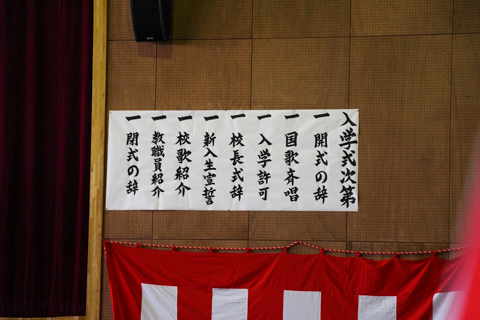 入学式次第
一 開式の辞
一 国歌斉唱
一 入学許可
一 校長式辞
一 新入生宣誓
一 校歌紹介
一 教職員紹介
一 閉式の辞